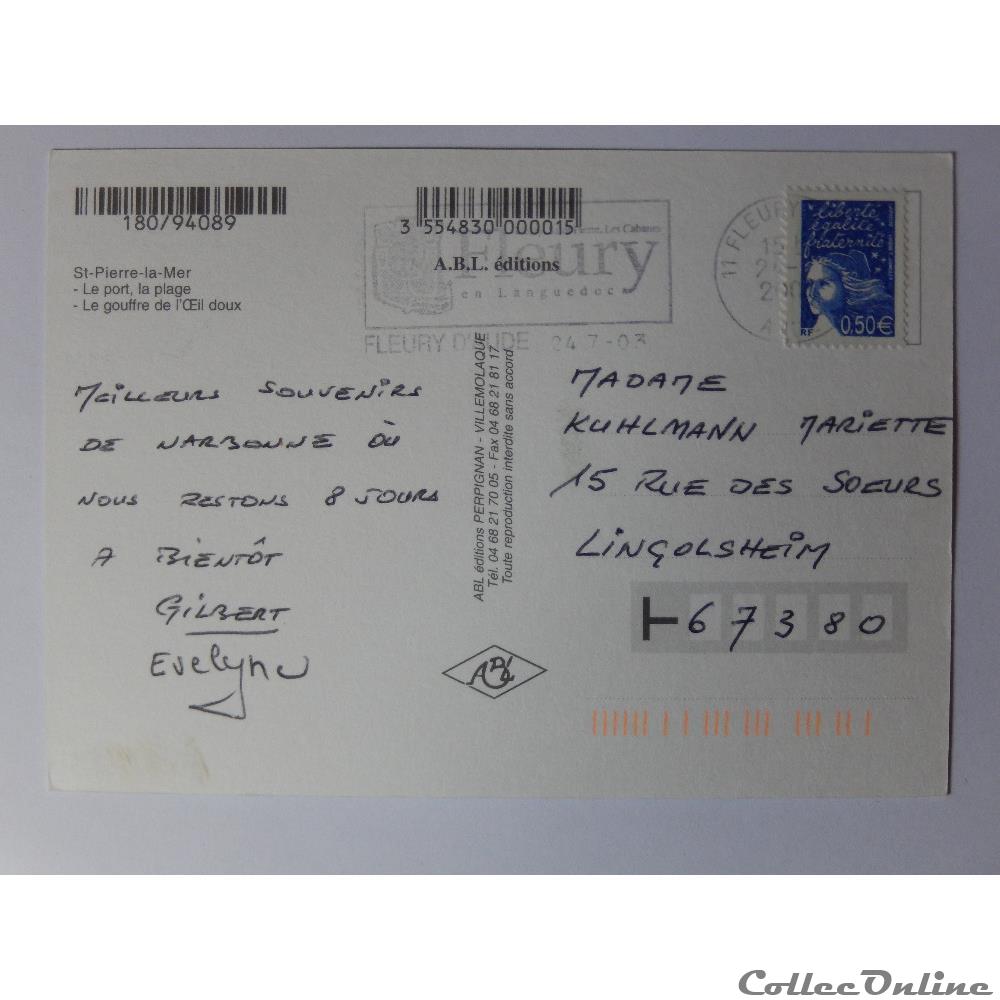 180/94089
3 554830 000015
St-Pierre-la-Mer
- Le port, la plage
- Le gouffre de l'Œil doux
A.B.L. éditions
Les Cabanes
Fleury
en Languedoc
FLEURY D'AUDE 24-7-03
11 FLEURY
liberté
égalité
fraternité
RF 0,50€
MEILLEURS SOUVENIRS
DE NARBONNE OÙ
NOUS RESTONS 8 JOURS
A BIENTÔT
GILBERT
Evelyne
ABL éditions PERPIGNAN - VILLEMOLAQUE
Tél. 04 68 21 70 05 - Fax 04 68 21 81 17
Toute reproduction interdite sans accord
ABL
MADAME
KUHLMANN MARIETTE
15 RUE DES SOEURS
LINGOLSHEIM
67380
CollecOnline